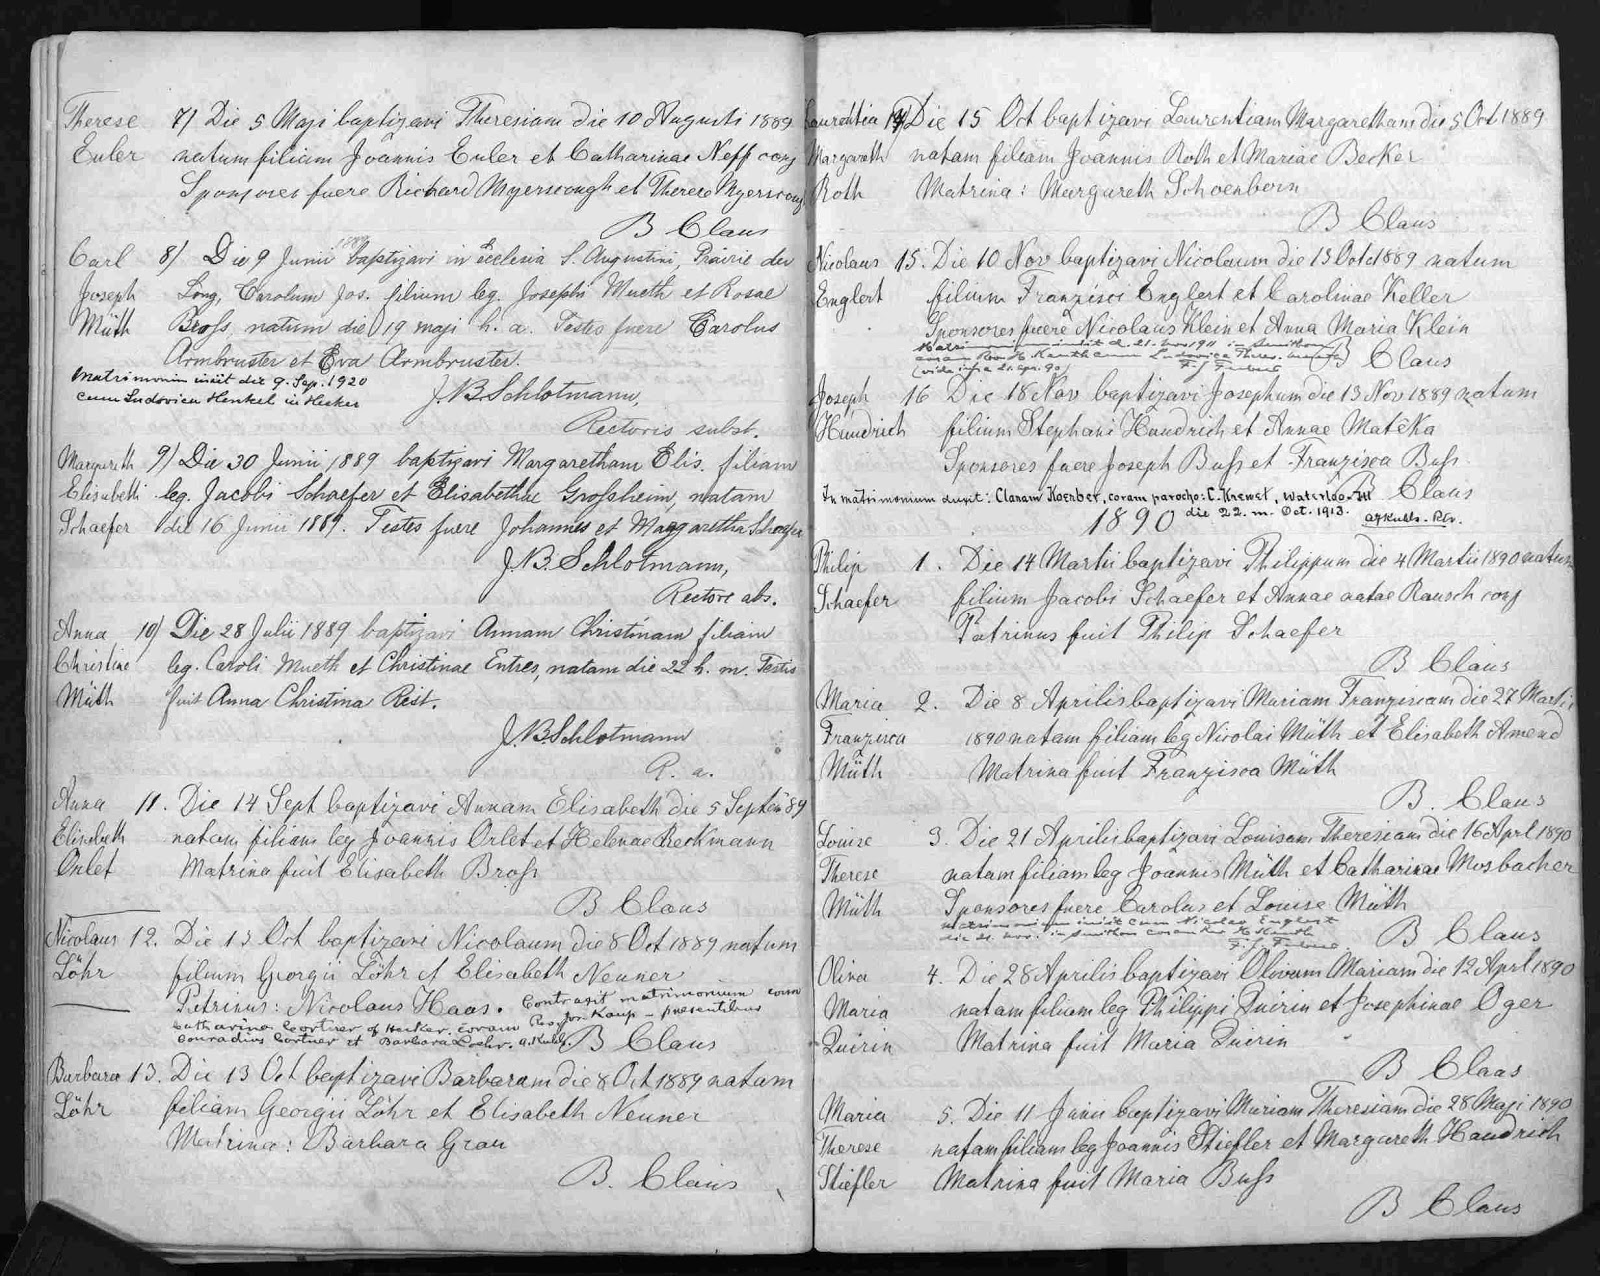 Therese 7) Die 5 Maji baptizavi Theresiam die 10 Augusti 1889
Euler natam filiam Joannis Euler et Catharinae Neff conj
Sponsores fuere Richard Myerscough et Therese Myerscoug
B Claus
Carl 8) Die 9 Junii 1889 baptizavi in Ecclesia S. Augustini, Prairie du
Joseph Long, Carolum Jos. filium leg. Josephi Mueth et Rosae
Müth Bross, natum die 19 maji h. a. Testes fuere Carolus
Armbruster et Eva Armbruster.
Matrimonium iniit die 9. Sep. 1920
cum Ludovica Henkel in Hecker
J. B. Schlotmann,
Rectoris subst.
Margareth 9) Die 30 Junii 1889 baptizavi Margaretham Elis. filiam
Elisabeth leg. Jacobi Schaefer et Elisabethae Grossheim, natam
Schaefer die 16 Junii 1889. Testes fuere Johannes et Margaretha Schaefer
J. B. Schlotmann,
Rectore abs.
Anna 10) Die 28 Julii 1889 baptizavi Annam Christinam filiam
Christine leg. Caroli Mueth et Christinae Entres, natam die 22 h. m. Testis
Müth fuit Anna Christina Rest.
J. B. Schlotmann
R. a.
Anna 11. Die 14 Sept baptizavi Annam Elisabeth die 5 Septem 89
Elisabeth natam filiam leg Joannis Orlet et Helenae Beckmann
Orlet Matrina fuit Elisabeth Bross
B Claus
Nicolaus 12. Die 13 Oct baptizavi Nicolaum die 8 Oct 1889 natum
Löhr filium Georgii Löhr et Elisabeth Neuner
Patrinus: Nicolaus Haas. Contraxit matrimonium cum
Catharina Cortner of Hecker, coram Jos. Kaup - presentibus
Conradius Cortner et Barbara Loehr. A. Kuhls. B Claus
Barbara 13. Die 13 Oct baptizavi Barbaram die 8 Oct 1889 natam
Löhr filiam Georgii Löhr et Elisabeth Neuner
Matrina: Barbara Grau
B. Claus
Laurentia 14) Die 15 Oct baptizavi Laurentiam Margaretham die 5 Oct 1889
Margareth natam filiam Joannis Roth et Mariae Becker
Roth Matrina: Margareth Schoenborn
B Claus
Nicolaus 15. Die 10 Nov baptizavi Nicolaum die 13 Oct 1889 natum
Englert filium Franzisci Englert et Carolinae Keller
Sponsores fuere Nicolaus Klein et Anna Maria Klein
Matrimonium iniit d. 21. nov. 1911 in Smithon
coram Rev H. Kauth cum Ludovica Theres. Mueth B Claus
(vide infra 21. apr. 90)
Joseph 16 Die 18 Nov baptizavi Josephum die 13 Nov 1889 natum
Handrich filium Stephani Handrich et Annae Matéka
Sponsores fuere Joseph Buss et Franzisca Buss
In matrimonium duxit: Claram Koerber, coram parocho: C. Krewet, Waterloo Ill B Claus
1890 die 22. m. Oct. 1913.
Philip 1. Die 14 Martii baptizavi Philippum die 4 Martii 1890 natum
Schaefer filium Jacobi Schaefer et Annae natae Rausch conj
Patrinus fuit Philip Schaefer
B Claus
Maria 2. Die 8 Aprilis baptizavi Mariam Franziscam die 27 Martii
Franzisca 1890 natam filiam leg Nicolai Müth et Elisabeth Amend
Müth Matrina fuit Franzisca Müth
B. Claus
Louise 3. Die 21 Aprilis baptizavi Louisam Theresiam die 16 Aprl 1890
Therese natam filiam leg Joannis Müth et Catharinae Mosbacher
Müth Sponsores fuere Carolus et Louise Müth
Matrimonium iniit cum Nicolao Englert
die 21. nov. in Smithon coram Rev H Kauth B Claus
Oliva 4. Die 28 Aprilis baptizavi Olivam Mariam die 12 Aprl 1890
Maria natam filiam leg Philippi Quirin et Josephinae Oger
Quirin Matrina fuit Maria Quirin
B Claus
Maria 5. Die 11 Junii baptizavi Mariam Theresiam die 28 Maji 1890
Therese natam filiam leg Joannis Stiefler et Margareth Handrich
Stiefler Matrina fuit Maria Buss
B Claus